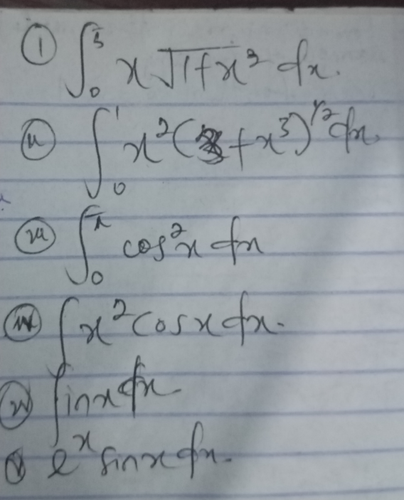 ① ∫₀³ x √1+x² dx.
ⅱ ∫₀¹ x² ( + x³)^1/2 dx.
ⅲ ∫₀^π cos²x dx
ⅳ ∫ x² cosx dx.
ⅴ ∫ inx dx
e^x sinx dx.